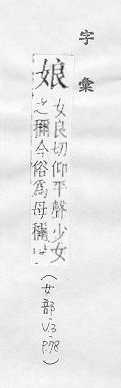 字彙
娘
女良切仰平聲少女
之稱今俗爲母稱
(女部 V.3 P.78)